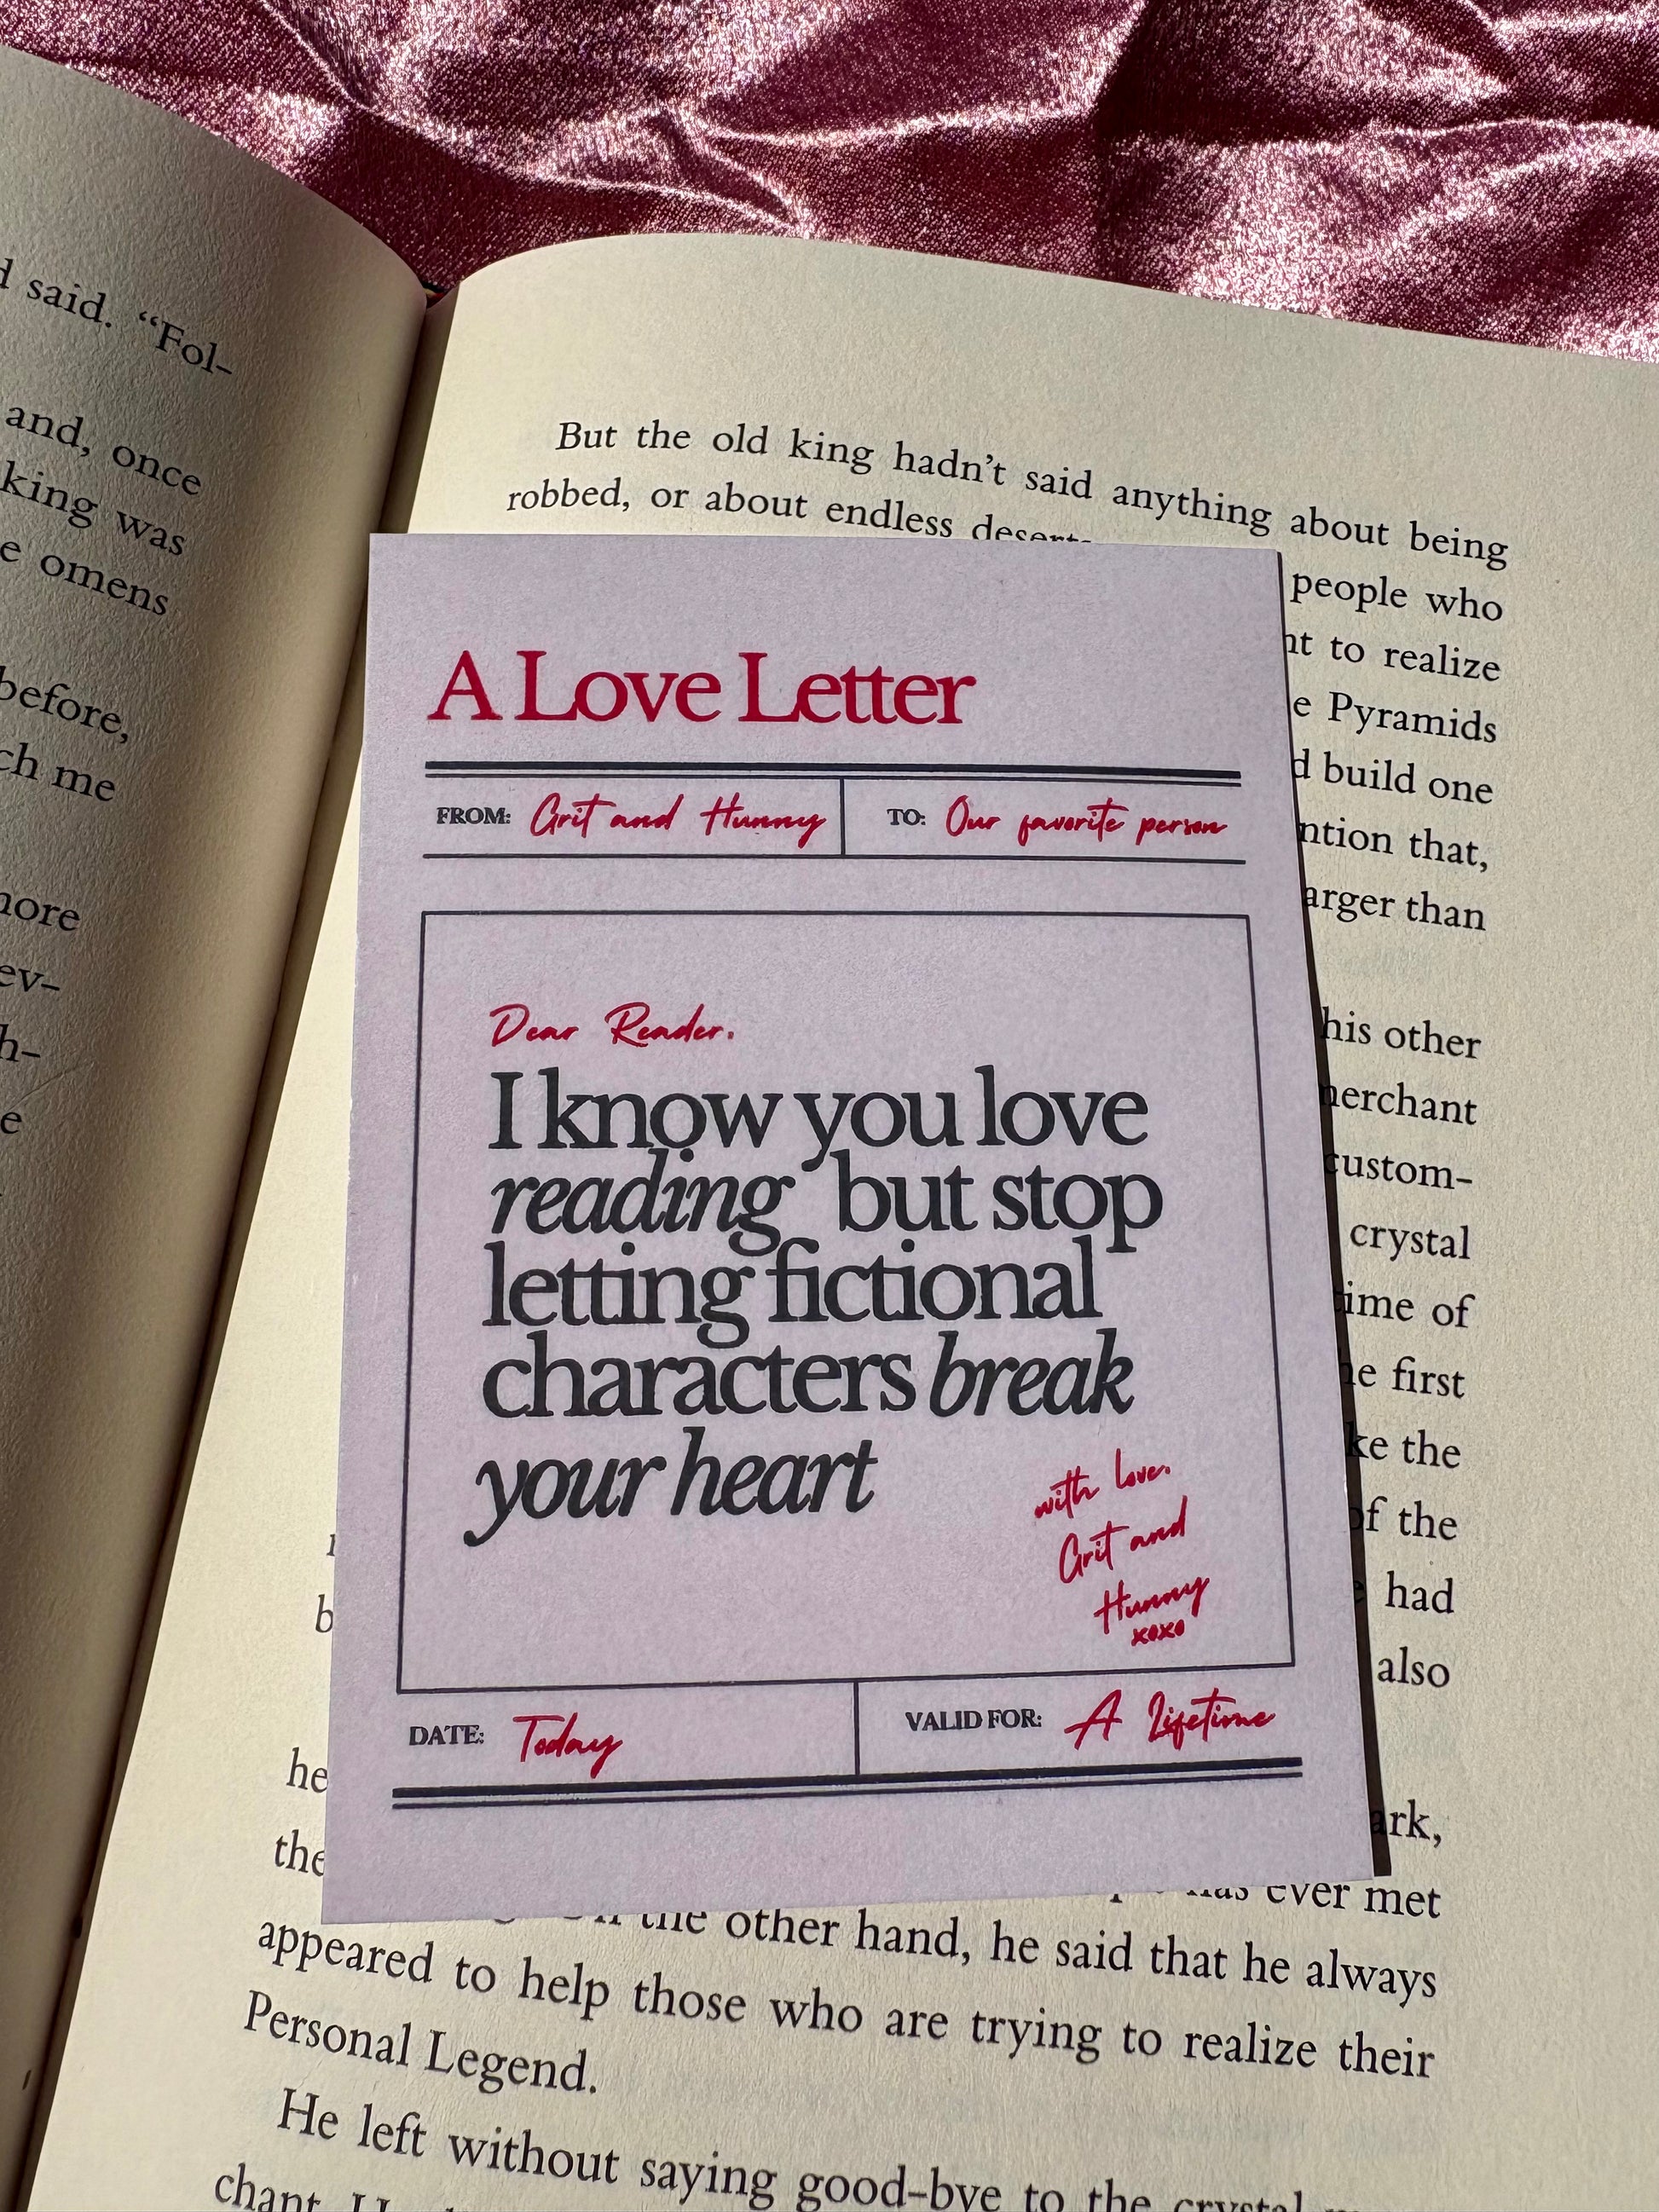 d said. “Fol-
and, once
king was
omens
before,
me
But the old king hadn’t said anything about being
robbed, or about endless deserts
people who
to realize
Pyramids
build one
that,
than
his other
merchant
custom-
crystal
time of
first
the
of the
had
also
A Love Letter
FROM: Grit and Hunny TO: Our favorite person
Dear Reader,
I know you love
reading but stop
letting fictional
characters break
your heart
with love,
Grit and
Hunny
xoxo
DATE: Today VALID FOR: A Lifetime
he
the
has ever met
the other hand, he said that he always
appeared to help those who are trying to realize their
Personal Legend.
He left without saying good-bye to the crystal
chant.